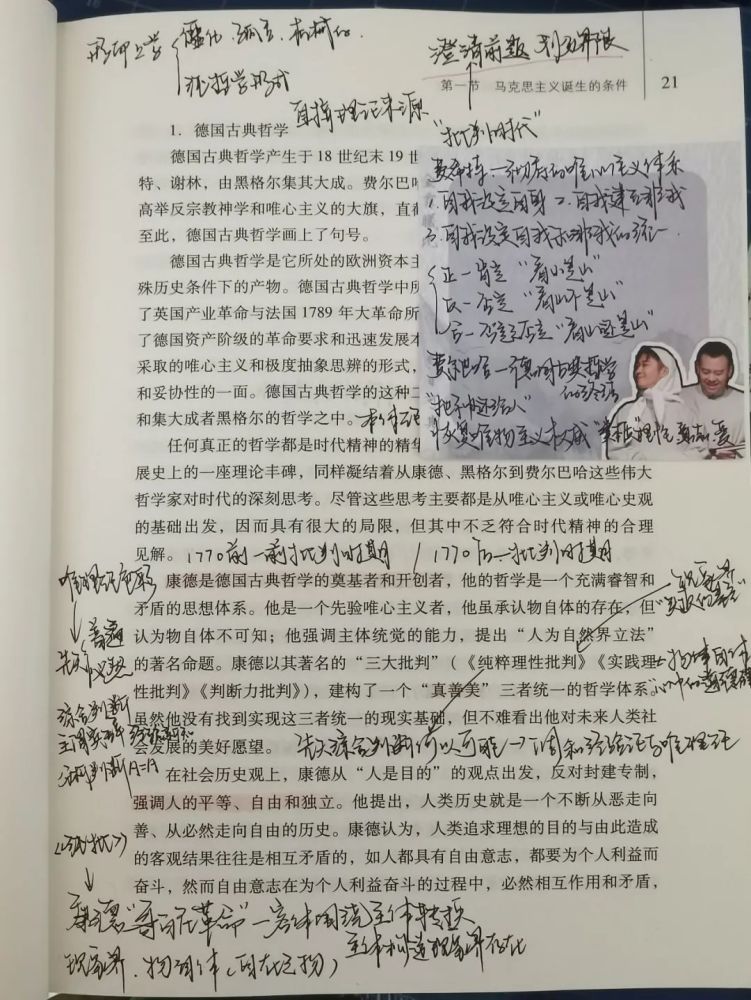 形而上学
僵化、孤立、机械的
澄清前提 划分界限
第一节 马克思主义诞生的条件 21
"批判时代"
1. 德国古典哲学
德国古典哲学产生于 18 世纪末 19 世
特、谢林，由黑格尔集其大成。费尔巴
高举反宗教神学和唯心主义的大旗，直
至此，德国古典哲学画上了句号。
德国古典哲学是它所处的欧洲资本主
殊历史条件下的产物。德国古典哲学中所
了英国产业革命与法国 1789 年大革命所
了德国资产阶级的革命要求和迅速发展
采取的唯心主义和极度抽象思辨的形式，
和妥协性的一面。德国古典哲学的这种二
和集大成者黑格尔的哲学之中。
费希特：一切存在的唯心主义体系
1.自我设定自身 2.自我建立非我
3.自我设定自我和非我的统一
正—肯定 "看山是山"
反—否定 "看山不是山"
合—否定之否定 "看山还是山"
费尔巴哈—德国古典哲学
的终结
恢复唯物主义权威
任何真正的哲学都是时代精神的精华
展史上的一座理论丰碑，同样凝结着从康德、黑格尔到费尔巴哈这些伟大
哲学家对时代的深刻思考。尽管这些思考主要都是从唯心主义或唯心史观
的基础出发，因而具有很大的局限，但其中不乏符合时代精神的合理
见解。 1770前—前批判时期 / 1770后—批判时期
康德是德国古典哲学的奠基者和开创者，他的哲学是一个充满睿智和
矛盾的思想体系。他是一个先验唯心主义者，他虽承认物自体的存在，但
认为物自体不可知；他强调主体统觉的能力，提出“人为自然界立法”
的著名命题。康德以其著名的“三大批判”（《纯粹理性批判》《实践理
性批判》《判断力批判》），建构了一个“真善美”三者统一的哲学体系。
虽然他没有找到实现这三者统一的现实基础，但不难看出他对未来人类社
会发展的美好愿望。 先天综合判断何以可能→调和经验论与唯理论
普遍
综合判断
分析判断A=A
在社会历史观上，康德从“人是目的”的观点出发，反对封建专制，
强调人的平等、自由和独立。他提出，人类历史就是一个不断从恶走向
善、从必然走向自由的历史。康德认为，人类追求理想的目的与由此造成
的客观结果往往是相互矛盾的，如人都具有自由意志，都要为个人利益而
奋斗，然而自由意志在为个人利益奋斗的过程中，必然相互作用和矛盾，
《纯批》
康德"哥白尼革命"—客体围绕主体转换
主体构造现象界存在
现象界、物自体（自在之物）